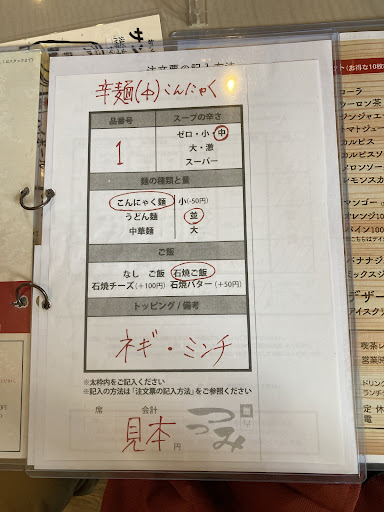 注文票の記入方法
辛麺(中)こんにゃく
品番号 スープの辛さ
1
ゼロ・小・中
大・激
スーパー
麺の種類と量
こんにゃく麺 小(-50円)
うどん麺 並
中華麺 大
ご飯
なし ご飯 石焼ご飯
石焼チーズ(+100円) 石焼バター(+50円)
トッピング / 備考
ネギ・ミンチ
※太枠内をご記入ください
※記入の方法は「注文票の記入方法」をご参照ください
席 会計
見本 円
つつみ
(お得な10枚
コーラ
ウーロン茶
ジンジャー
トマトジュー
カルピス
カルピス
メロンソー
レモンスカ
マンゴー
パイン100
バナナジ
ミックスジ
デザー
アイスクリ
喫茶レ
営業時
ドリンク
ランチタ
定休
電